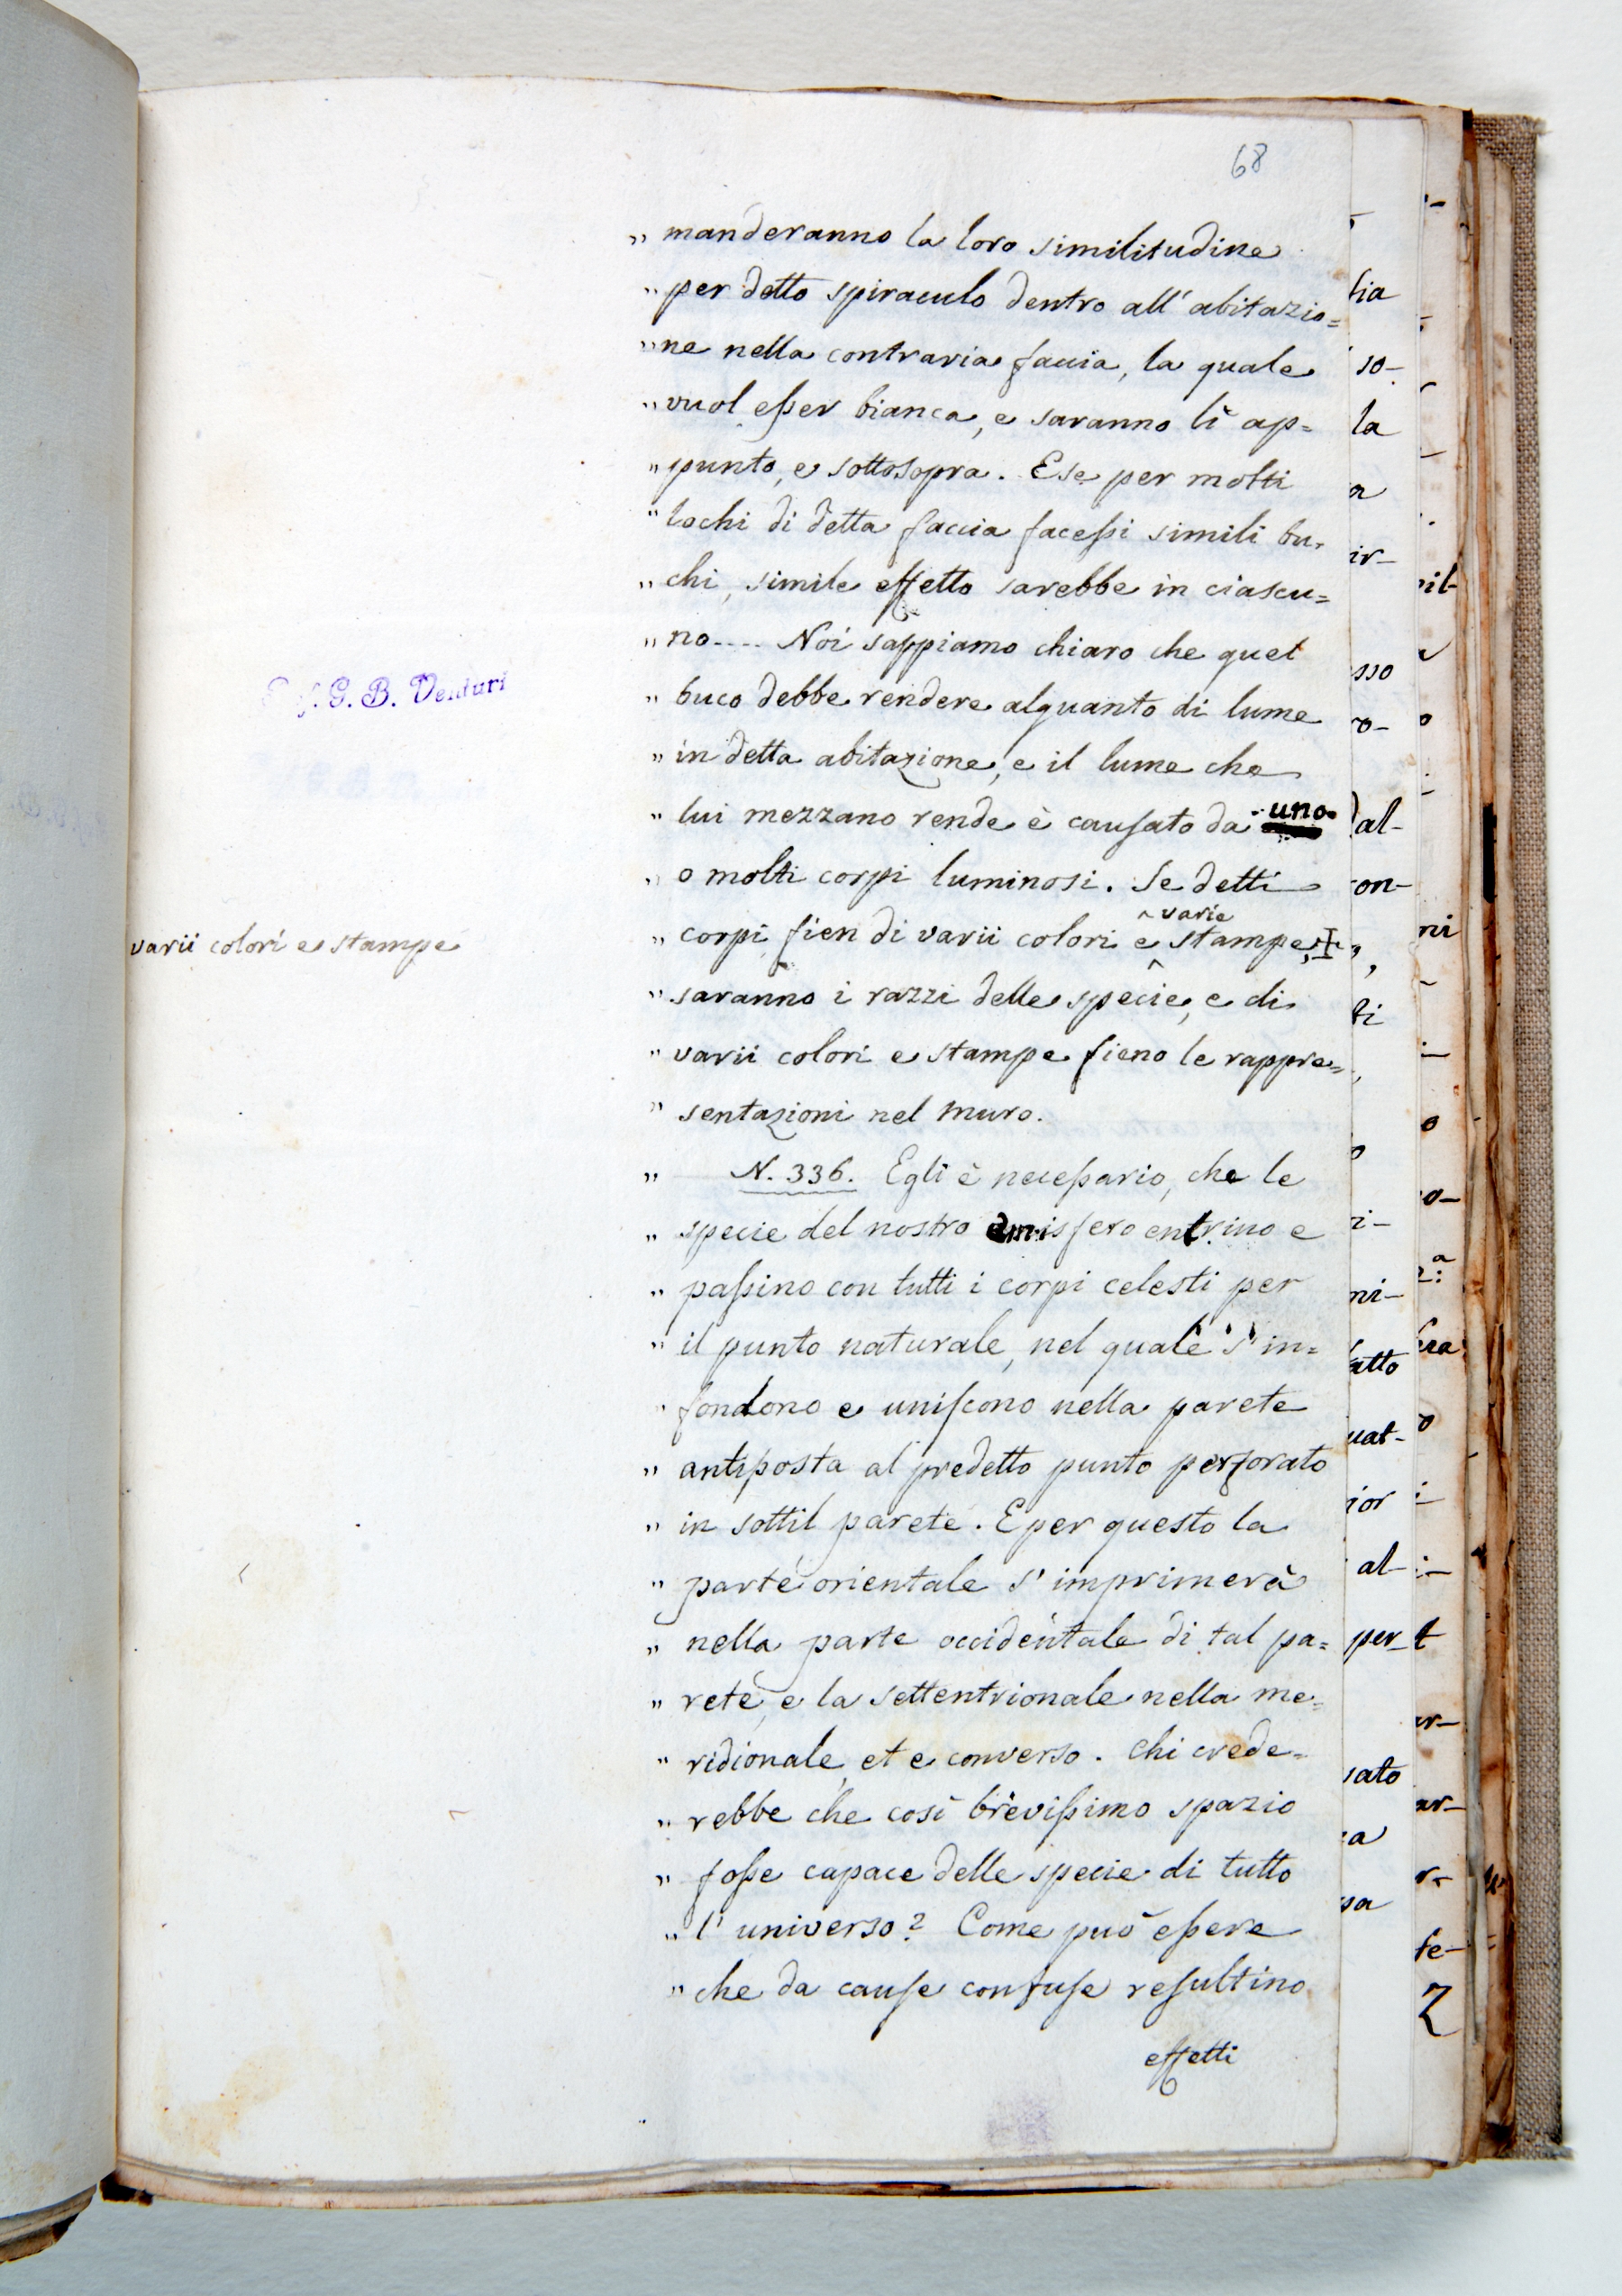 68
„ manderanno la loro similitudine
„ per detto spiraculo dentro all' abitazio=
„ ne nella contraria faccia, la quale
„ vuol eſser bianca, e saranno lì ap=
„ punto, e sottosopra. E se per molti
„ lochi di detta faccia faceſsi simili bu=
„ chi, simile effetto sarebbe in ciascu=
„ no.... Noi sappiamo chiaro che quel
G. B. Venturi
„ buco debbe rendere alquanto di lume
„ in detta abitazione, e il lume che
„ lui mezzano rende è cauſato da uno
„ o molti corpi luminosi. Se detti
varie
„ corpi fien di varii colori e stampe,
varii colori e stampe
„ saranno i razzi delle specie, e di
„ varii colori e stampe fieno le rappre=
„ sentazioni nel muro.
„ N. 336. Egli è neceſsario, che le
„ specie del nostro emisfero entrino e
„ paſsino con tutti i corpi celesti per
„ il punto naturale, nel quale s' in=
„ fondono e uniſcono nella parete
„ antiposta al predetto punto perforato
„ in sottil parete. E per questo la
„ parte orientale s' imprimerà
„ nella parte occidentale di tal pa=
„ rete, e la settentrionale nella me=
„ ridionale, et e converso. Chi crede=
„ rebbe che così breviſsimo spazio
„ foſse capace delle specie di tutto
„ l' universo? Come può eſsere
„ che da cauſe confuſe reſultino
effetti